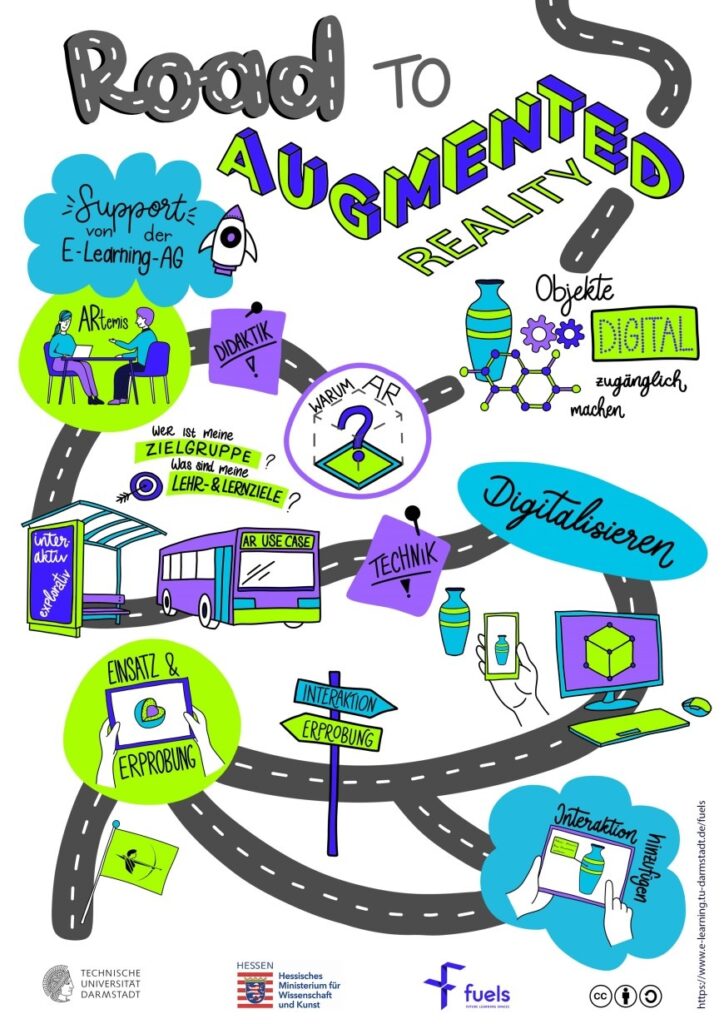 Road TO
AUGMENTED
REALITY
Support
von der
E-Learning-AG
ARtemis
DIDAKTIK
!
WARUM AR
?
Objekte
DIGITAL
zugänglich
machen
WER IST MEINE
ZIELGRUPPE?
WAS SIND MEINE
LEHR- & LERNZIELE?
Digitalisieren
TECHNIK
!
inter
aktiv
explorativ
AR USE CASE
EINSATZ &
ERPROBUNG
INTERAKTION
ERPROBUNG
Interaktion
hinzufügen
https://www.e-learning.tu-darmstadt.de/fuels
TECHNISCHE
UNIVERSITÄT
DARMSTADT
HESSEN
Hessisches
Ministerium für
Wissenschaft
und Kunst
fuels
FUTURE LEARNING SPACES
cc